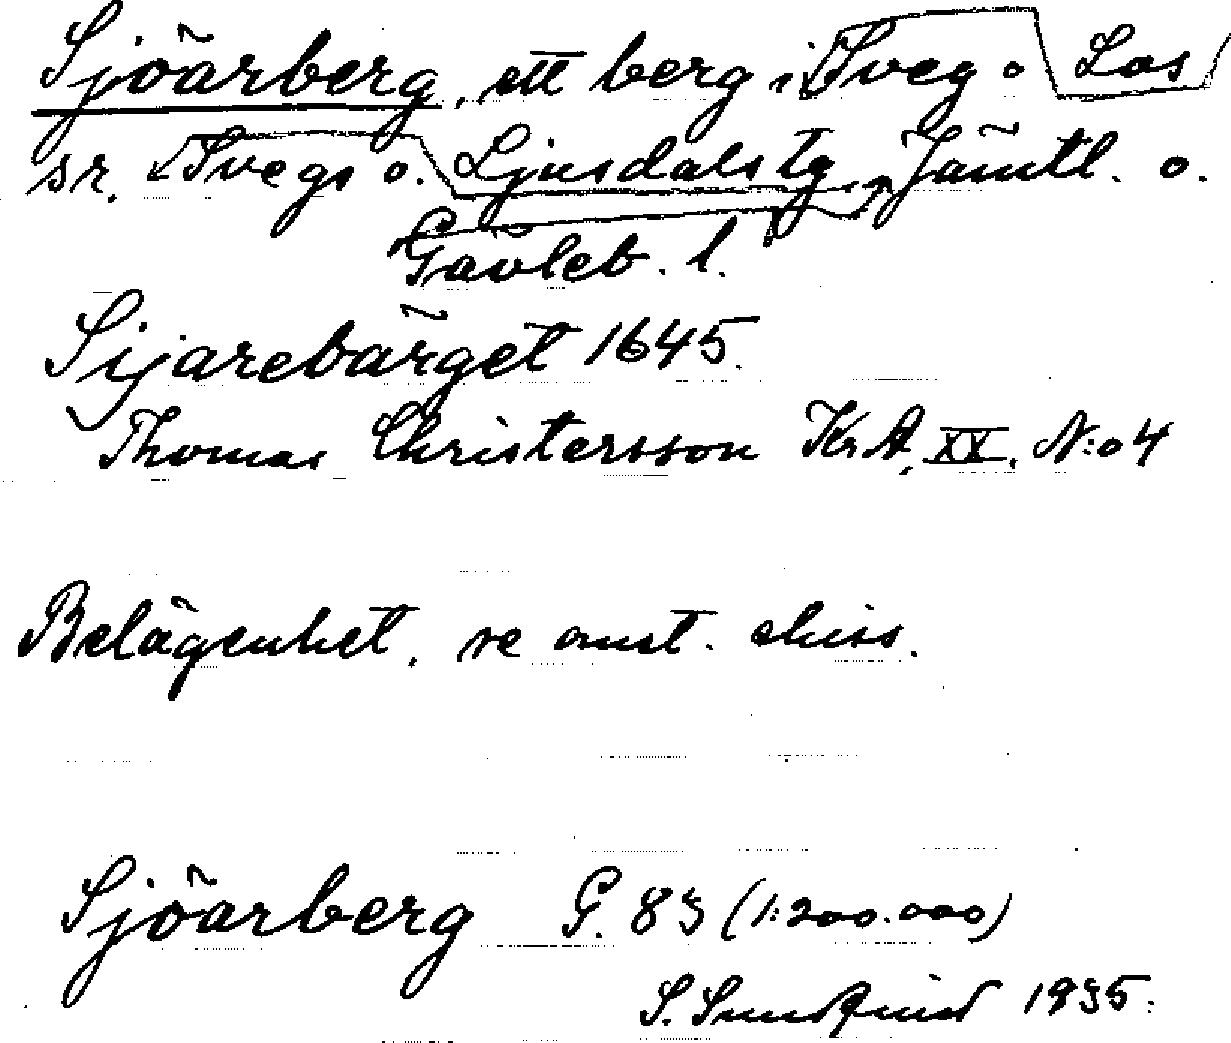 Sjöarberg, ett berg i Sveg o Los
sr. Svegs o. Ljusdals tg, Jämtl. o.
Gävleb. l.
Sijarebärget 1645.
Thomas Christersson KrA, XX, N:o 4
Belägenhet, se omst. skiss.
Sjöarberg G. 83 (1:200.000)
S. Sundqvist 1935.